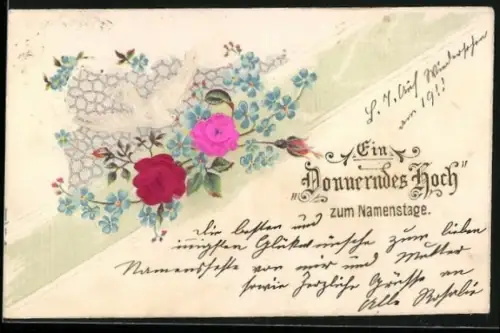 Auf Wiedersehen
am 19!!
Ein
„Donnerndes Hoch“
zum Namenstage.
Die besten und
innigsten Glückwünsche zum lieben
Namensfeste von mir und Mutter
sowie herzliche Grüsse an
Alle Rosalie